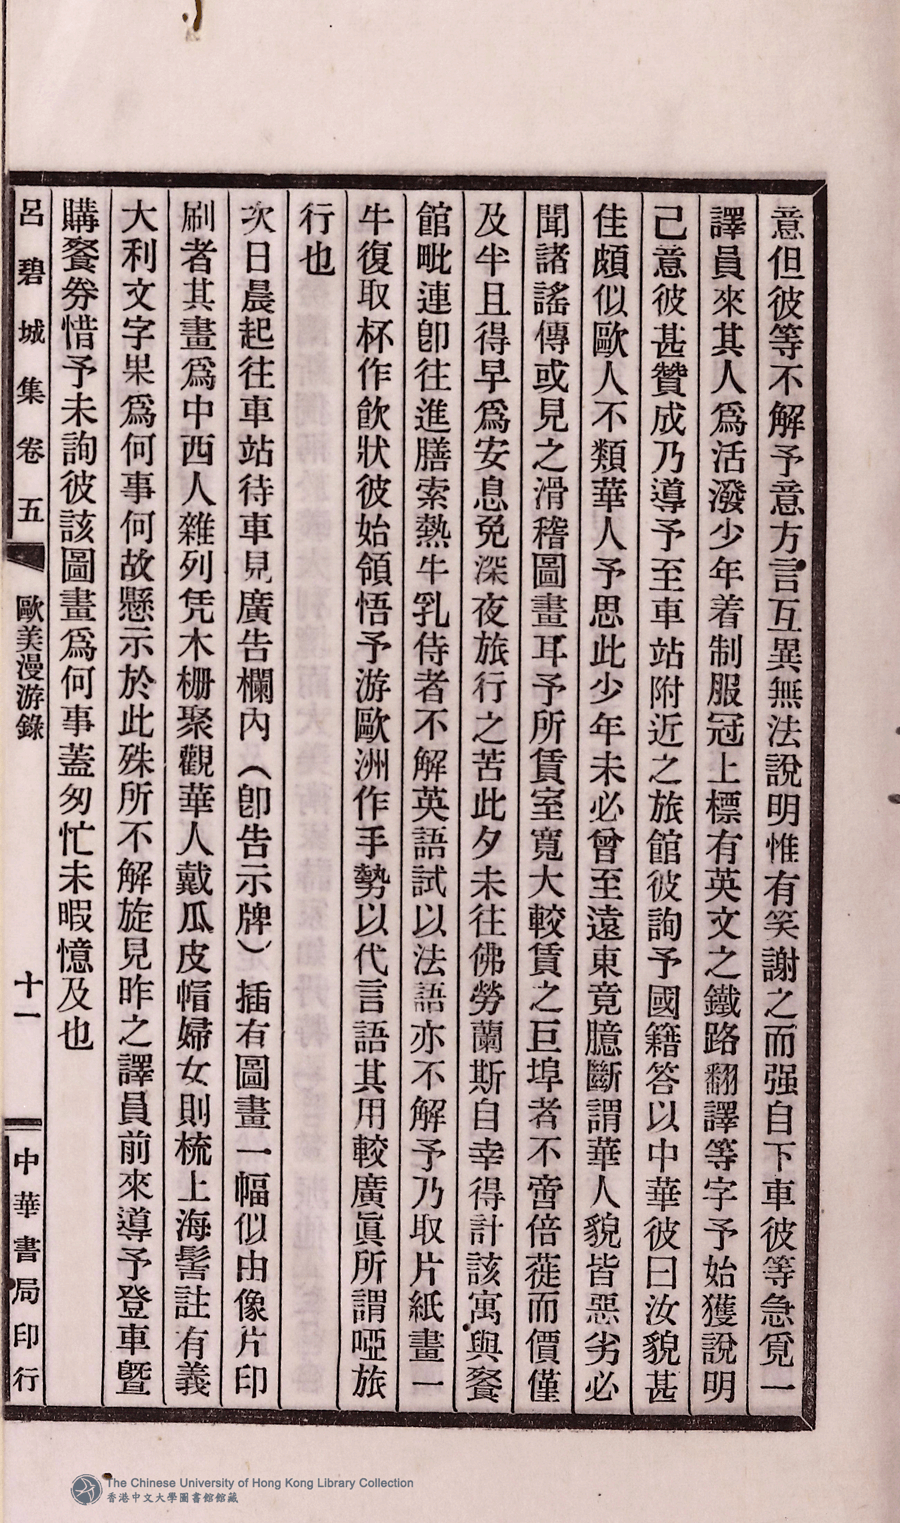 意但彼等不解予意方言互異無法說明惟有笑謝之而强自下車彼等急覓一
譯員來其人爲活潑少年着制服冠上標有英文之鐵路翻譯等字予始獲說明
己意彼甚贊成乃導予至車站附近之旅館彼詢予國籍答以中華彼曰汝貌甚
佳頗似歐人不類華人予思此少年未必曾至遠東竟臆斷謂華人貌皆惡劣必
聞諸謠傳或見之滑稽圖畫耳予所賃室寬大較賃之巨埠者不啻倍蓰而價僅
及半且得早爲安息免深夜旅行之苦此夕未往佛勞蘭斯自幸得計該寓與餐
館毗連卽往進膳索熱牛乳侍者不解英語試以法語亦不解予乃取片紙畫一
牛復取杯作飮狀彼始領悟予游歐洲作手勢以代言語其用較廣眞所謂啞旅
行也
次日晨起往車站待車見廣告欄內（卽告示牌）插有圖畫一幅似由像片印
刷者其畫爲中西人雜列凭木栅聚觀華人戴瓜皮帽婦女則梳上海髻註有義
大利文字果爲何事何故懸示於此殊所不解旋見昨之譯員前來導予登車曁
購餐券惜予未詢彼該圖畫爲何事蓋匆忙未暇憶及也
呂碧城集卷五
歐美漫游錄
十一
中華書局印行
The Chinese University of Hong Kong Library Collection
香港中文大學圖書館館藏